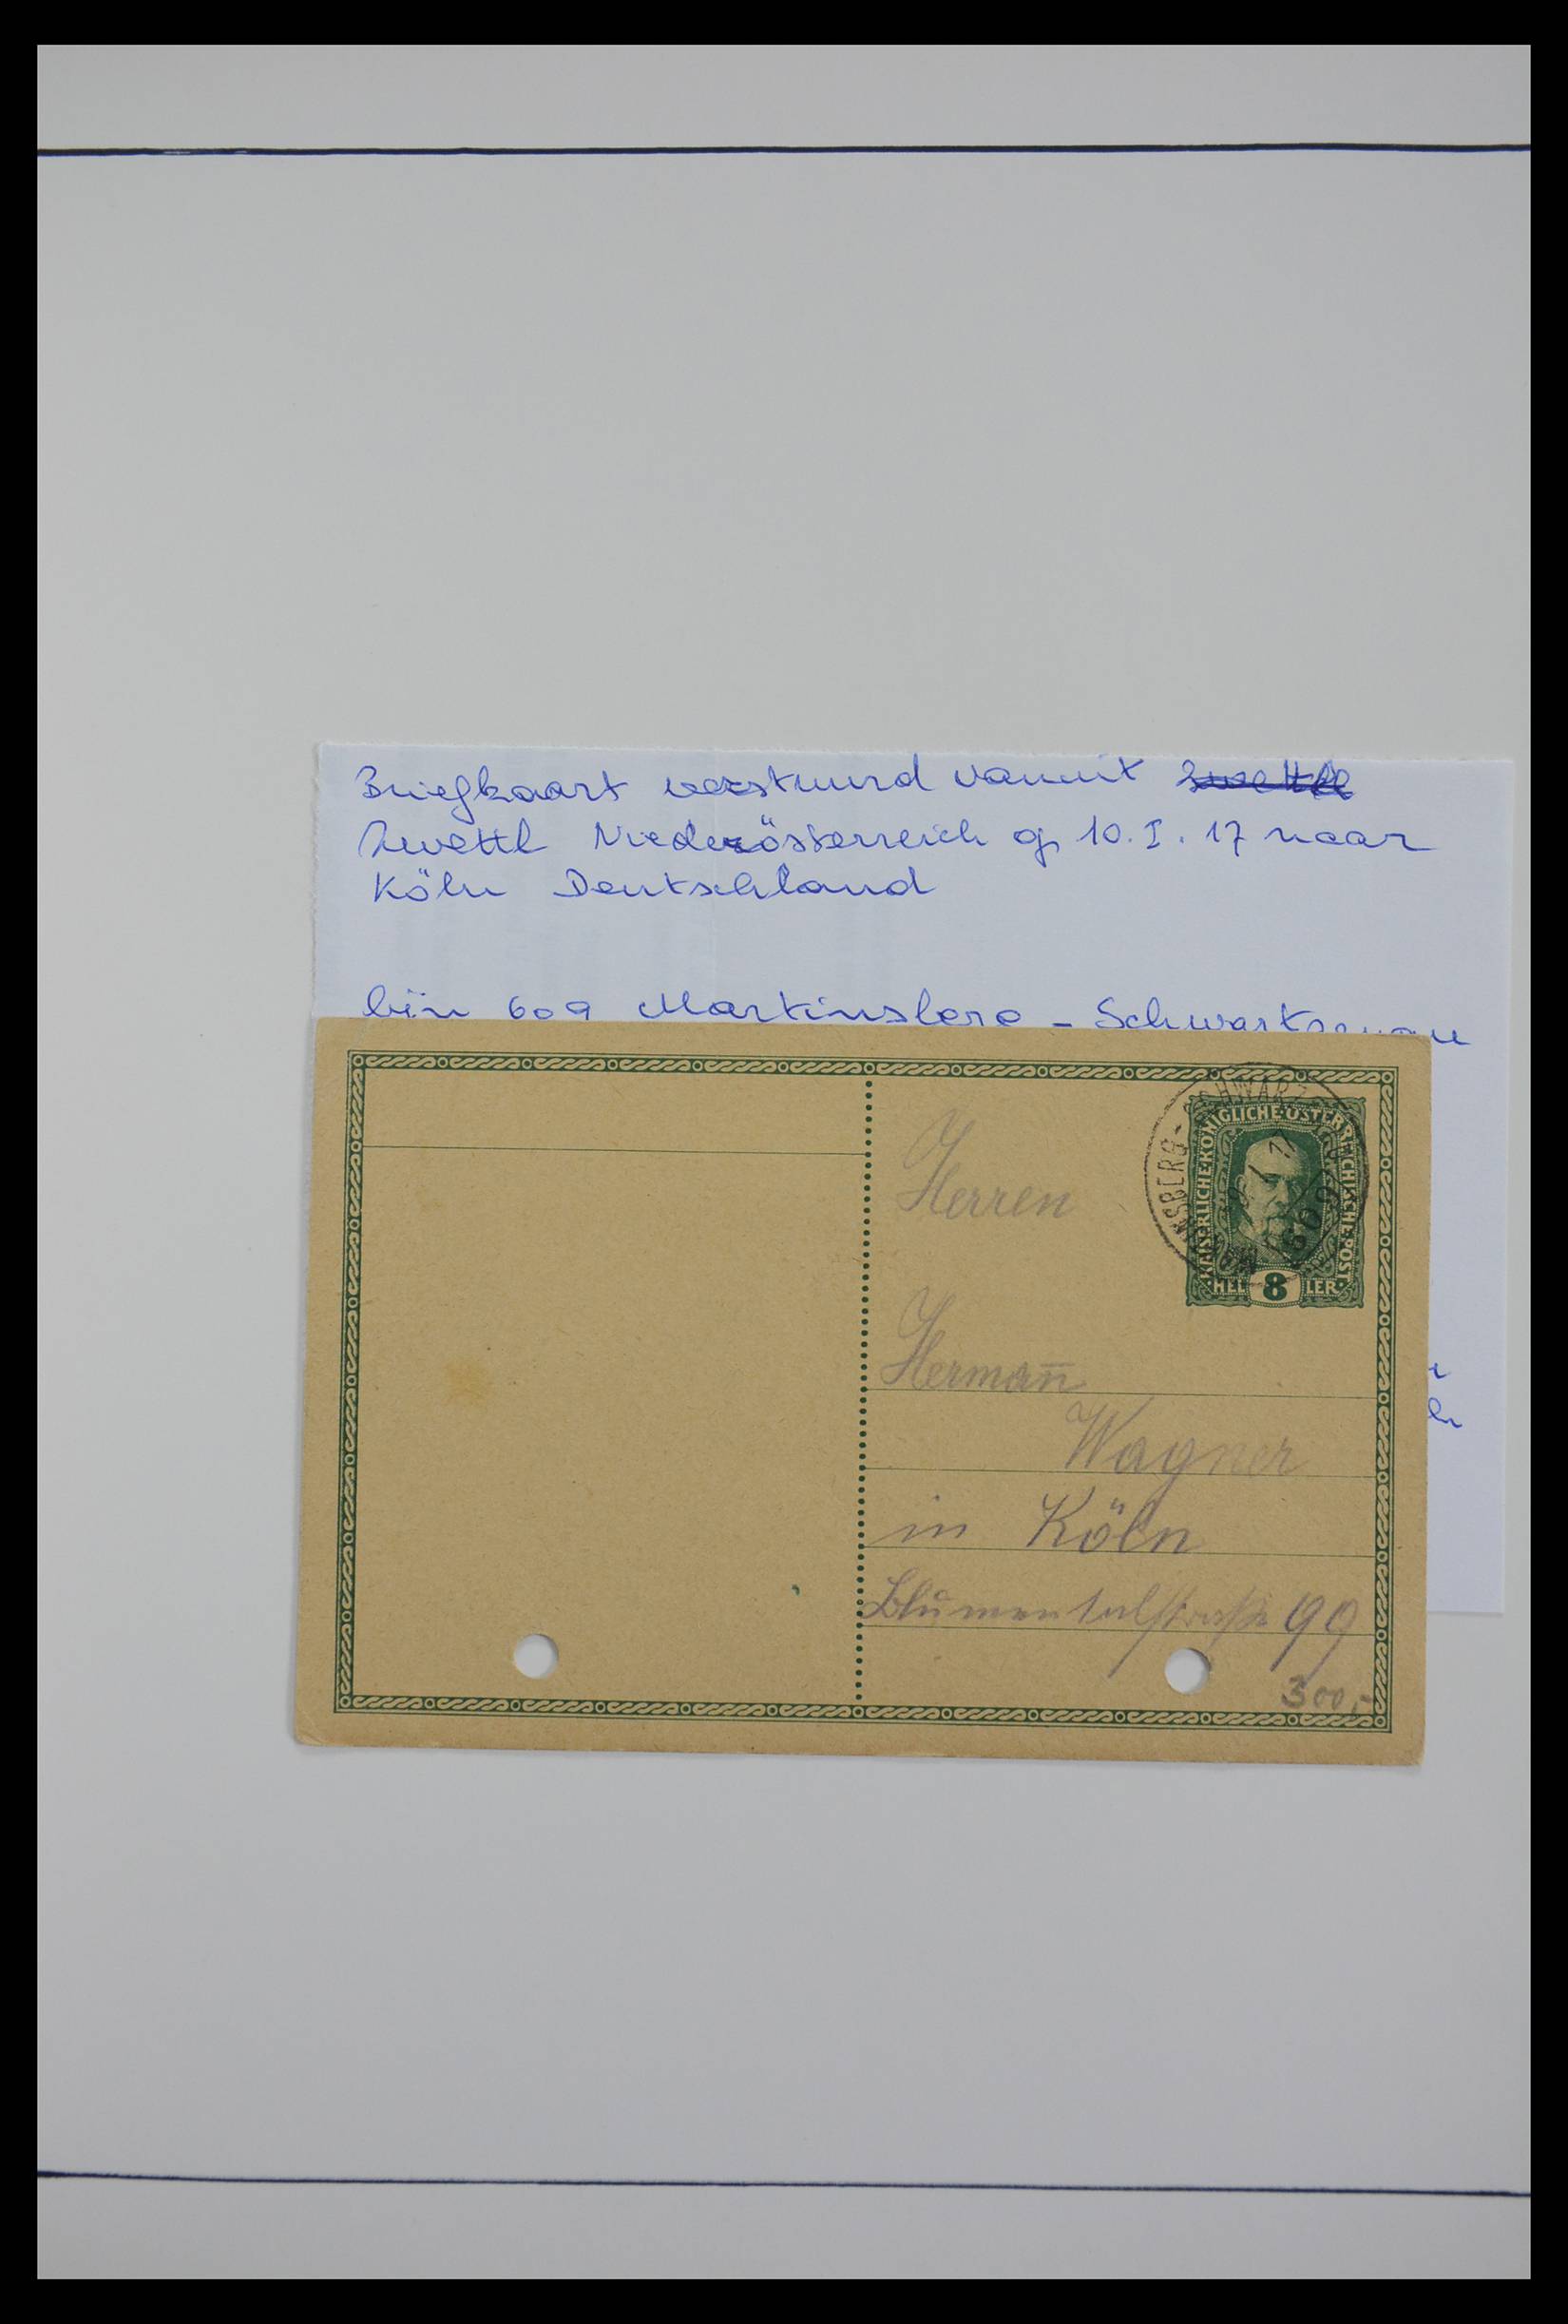 Briefkaart verstuurd vanuit
Zwettl Niederösterreich op 10.I.17 naar
Köln Deutschland
lijn 609 Martinsberg - Schwartzenau
NSBERG - SCHWARZ
609
KAISERLICHE KÖNIGLICHE ÖSTERREICHISCHE POST
HEL 8 LER
Herren
Herman̄
Wagner
in Köln
Blumentalstraße 99
300,-